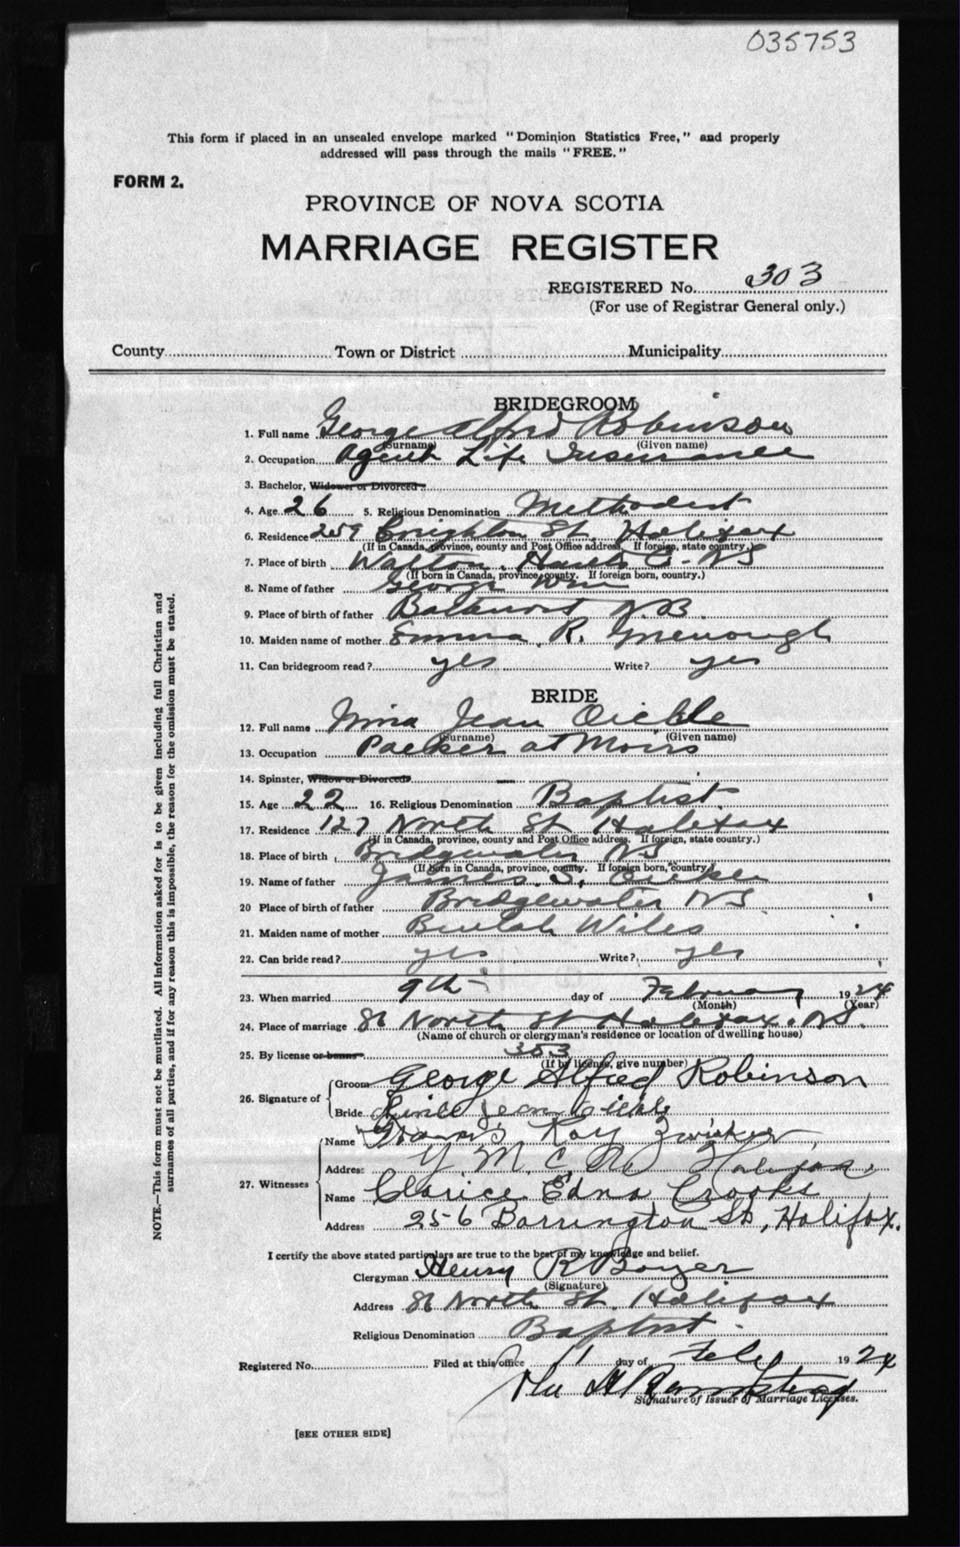 035753
This form if placed in an unsealed envelope marked "Dominion Statistics Free," and properly
addressed will pass through the mails "FREE."
FORM 2.
PROVINCE OF NOVA SCOTIA
MARRIAGE REGISTER
REGISTERED No. 303
(For use of Registrar General only.)
County Town or District Municipality
BRIDEGROOM
1. Full name George Alfred Robinson
(Surname) (Given name)
2. Occupation Agent Life Insurance
3. Bachelor, Widower or Divorced
4. Age 26 5. Religious Denomination Methodist
6. Residence 259 Creighton St. Halifax
(If in Canada, province, county and Post Office address. If foreign, state country.)
7. Place of birth Walton Hants Co. NS
(If born in Canada, province, county. If foreign born, country.)
8. Name of father George Wm
9. Place of birth of father Bathurst NB
10. Maiden name of mother Emma R.
11. Can bridegroom read? yes Write? yes
BRIDE
12. Full name Jean
(Surname) (Given name)
13. Occupation Packer at Moirs
14. Spinster, Widow or Divorced
15. Age 22 16. Religious Denomination Baptist
17. Residence 127 North St Halifax
(If in Canada, province, county and Post Office address. If foreign, state country.)
18. Place of birth Bridgewater NS
(If born in Canada, province, county. If foreign born, country.)
19. Name of father James S.
20 Place of birth of father Bridgewater NS
21. Maiden name of mother Beulah Wiles
22. Can bride read? yes Write? yes
23. When married 9th day of February 1924
(Month) (Year)
24. Place of marriage 86 North St Halifax. NS.
(Name of church or clergyman's residence or location of dwelling house)
25. By license or banns 353
(If by license, give number)
26. Signature of
Groom George Alfred Robinson
Bride Jean
27. Witnesses
Name Roy Zwicker
Address Y.M.C.A. Halifax
Name Clarice Edna Crooks
Address 256 Barrington St, Halifax.
I certify the above stated particulars are true to the best of my knowledge and belief.
Clergyman Henry R Boyer
(Signature)
Address 86 North St. Halifax
Religious Denomination Baptist
Registered No. Filed at this office 11 day of Feby 1924
Signature of Issuer of Marriage Licenses.
[SEE OTHER SIDE]
NOTE.—This form must not be mutilated. All information asked for is to be given including full Christian and
surnames of all parties, and if for any reason this is impossible, the reason for the omission must be stated.